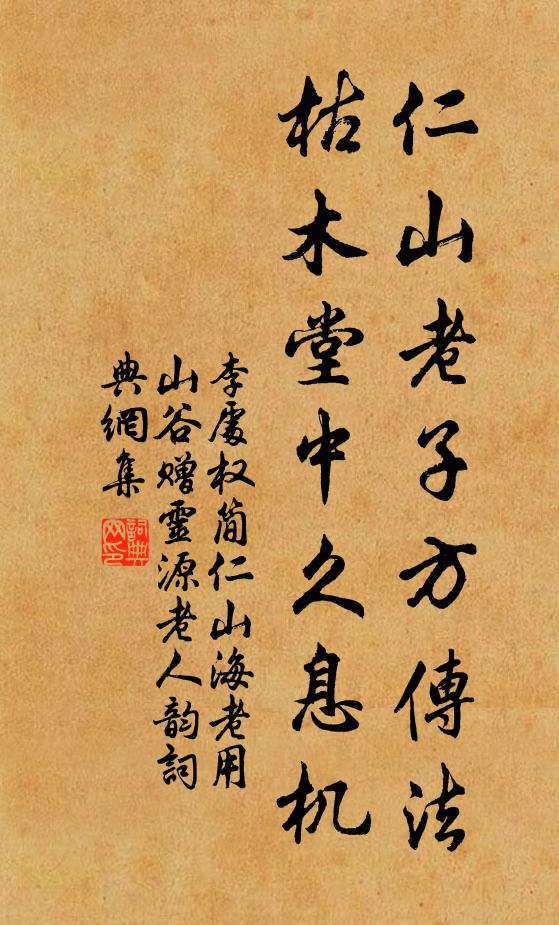 仁山老子方傳法
枯木堂中久息机
李處权简仁山海老用
山谷赠靈源老人韵詞
典網集
詞典
网印